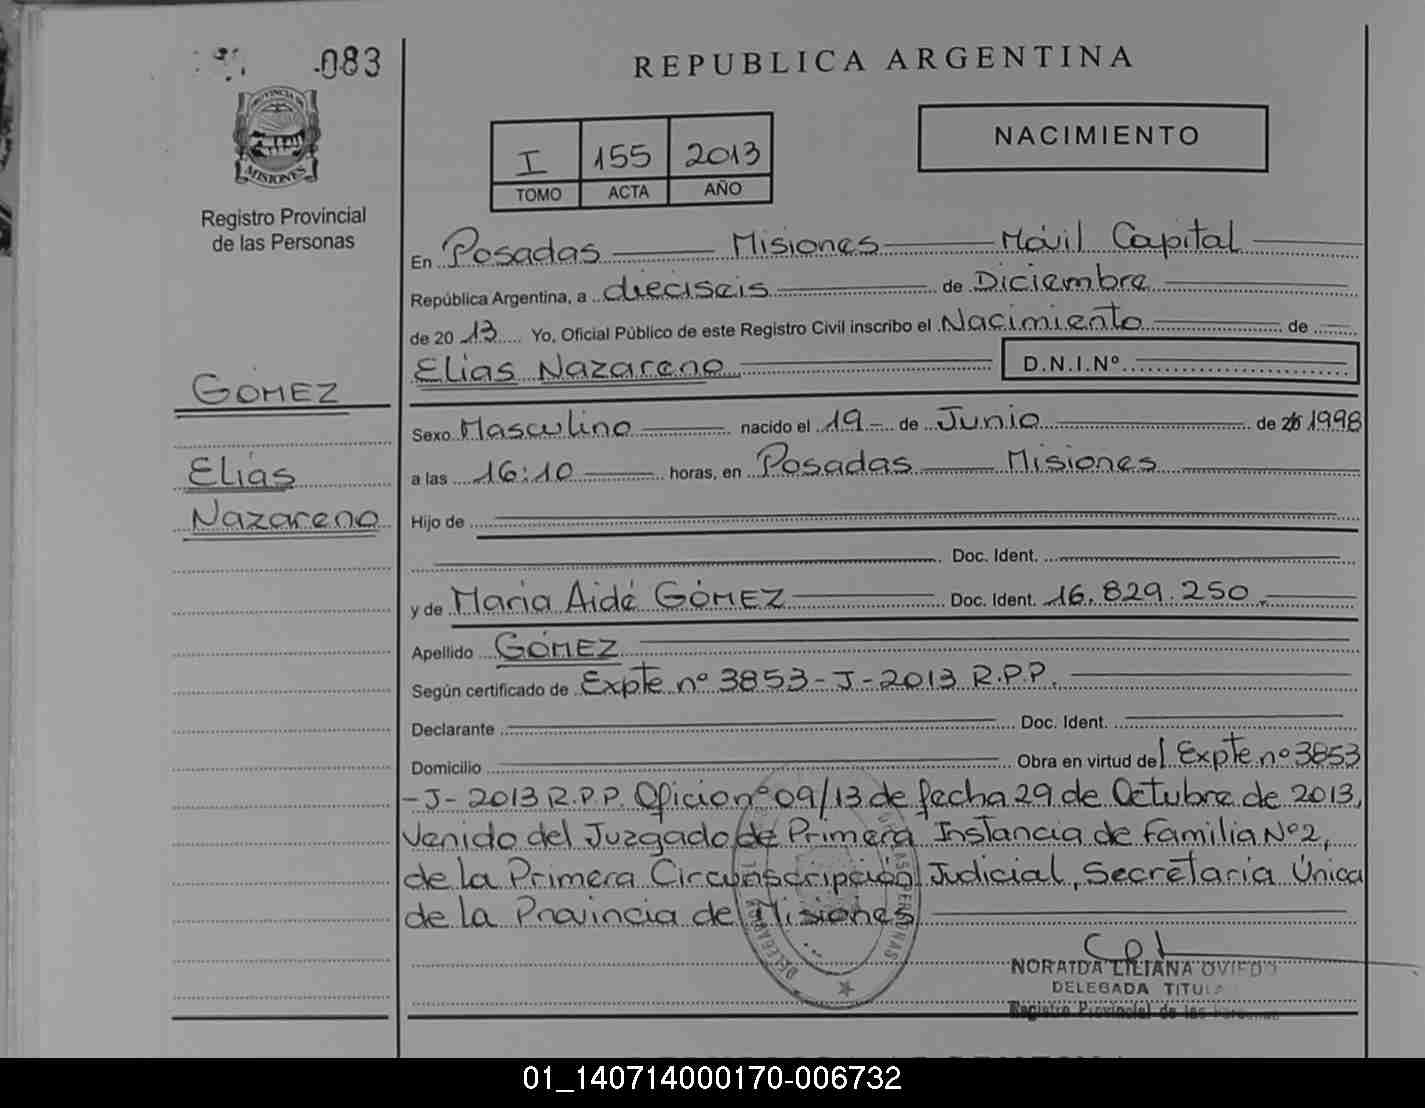 083
REPUBLICA ARGENTINA
PROVINCIA DE
MISIONES
Registro Provincial
de las Personas
I 155 2013
TOMO ACTA AÑO
NACIMIENTO
En Posadas Misiones Móvil Capital
República Argentina, a dieciseis de Diciembre
de 2013 Yo, Oficial Público de este Registro Civil inscribo el Nacimiento de
Elías Nazareno D.N.I.Nº
GÓMEZ
Elías
Nazareno
Sexo Masculino nacido el 19 de Junio de 1998
a las 16:10 horas, en Posadas Misiones
Hijo de
Doc. Ident.
y de María Aidé GÓMEZ Doc. Ident. 16.829.250.
Apellido GÓMEZ
Según certificado de Expte nº 3853-J-2013 R.P.P.
Declarante Doc. Ident.
Domicilio Obra en virtud del Expte nº 3853
-J-2013 R.P.P. Oficio nº 09/13 de fecha 29 de Octubre de 2013,
venido del Juzgado de Primera Instancia de Familia Nº2,
de la Primera Circunscripción Judicial, Secretaría Única
de la Provincia de Misiones
NORAIDA LILIANA OVIEDO
DELEGADA TITULAR
Registro Provincial de las Personas
01_140714000170-006732